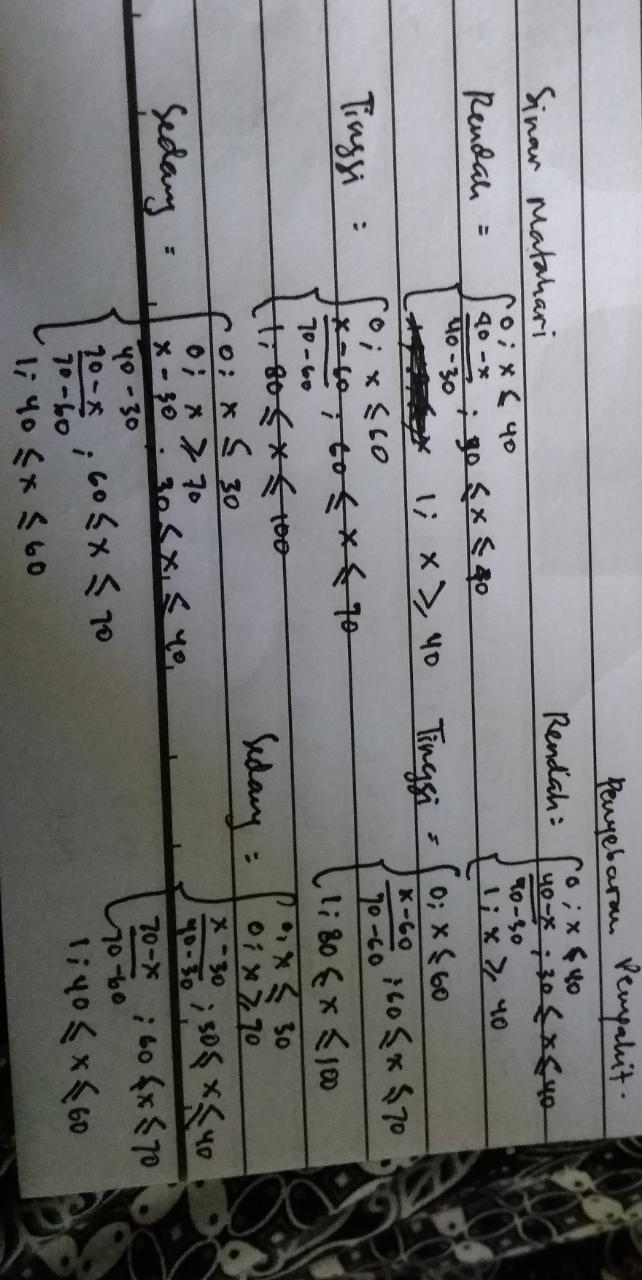 Penyebaran Penyakit.
Sinar Matahari
Rendah = { 0 ; x ≤ 40
40-x / 40-30 ; 30 ≤ x ≤ 40
1; x ≥ 40
Tinggi = { 0 ; x ≤ 60
x-60 / 70-60 ; 60 ≤ x ≤ 70
1; 80 ≤ x ≤ 100
Sedang = { 0 ; x ≤ 30
0 ; x ≥ 70
x-30 / 40-30 ; 30 ≤ x ≤ 40
70-x / 70-60 ; 60 ≤ x ≤ 70
1; 40 ≤ x ≤ 60
Rendah = { 0 ; x ≤ 40
40-x / 40-30 ; 30 ≤ x ≤ 40
1; x ≥ 40
Tinggi = { 0; x ≤ 60
x-60 / 70-60 ; 60 ≤ x ≤ 70
1; 80 ≤ x ≤ 100
Sedang = { 0, x ≤ 30
0; x ≥ 70
x-30 / 40-30 ; 30 ≤ x ≤ 40
70-x / 70-60 ; 60 ≤ x ≤ 70
1; 40 ≤ x ≤ 60